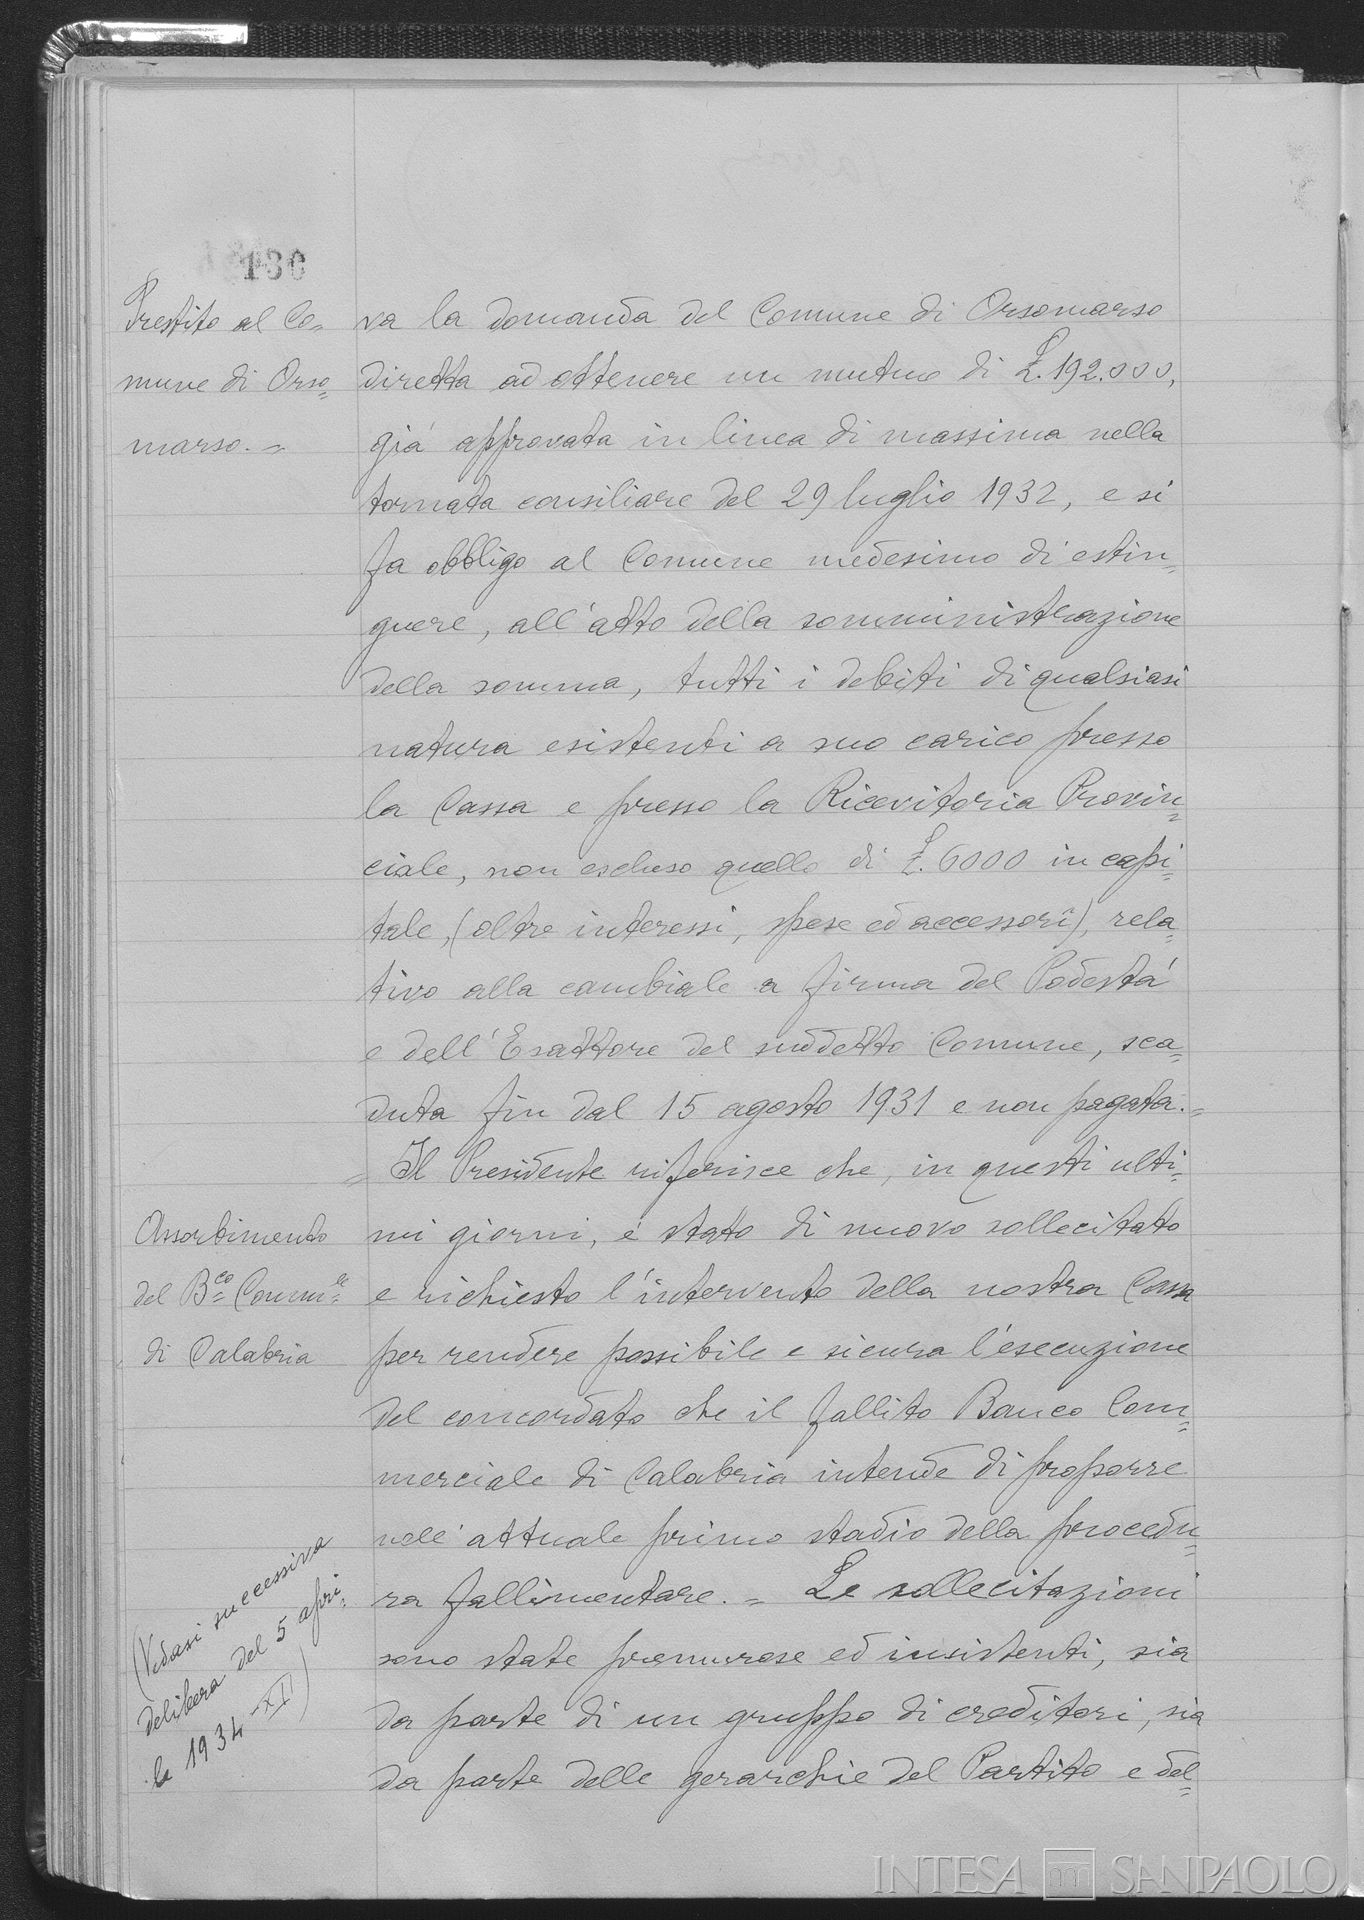 130
Prestito al Co=
mune di Orso=
marso.=
va la domanda del Comune di Orsomarso
diretta ad ottenere un mutuo di £.192.000,
già approvata in linea di massima nella
tornata consiliare del 29 luglio 1932, e si
fa obbligo al Comune medesimo di estin=
guere, all'atto della somministrazione
della somma, tutti i debiti di qualsiasi
natura esistenti a suo carico presso
la Cassa e presso la Ricevitoria Provin=
ciale, non escluso quello di £.6000 in capi=
tale, (oltre interessi, spese ed accessori), rela=
tivo alla cambiale a firma del Podestà
e dell'Esattore del suddetto Comune, sca=
duta fin dal 15 agosto 1931 e non pagata.=
= Il Presidente riferisce che, in questi ulti=
Assorbimento
del B.co Comm.le
di Calabria
mi giorni, è stato di nuovo sollecitato
e richiesto l'intervento della nostra Cassa
per rendere possibile e sicura l'esecuzione
del concordato che il fallito Banco Com=
merciale di Calabria intende di proporre
nell'attuale primo stadio della procedu=
ra fallimentare. = Le sollecitazioni
sono state premurose ed insistenti, sia
da parte di un gruppo di creditori, sia
da parte delle gerarchie del Partito e del=
(Vedasi successiva
delibera del 5 apri=
le 1934-XII)
INTESA SANPAOLO